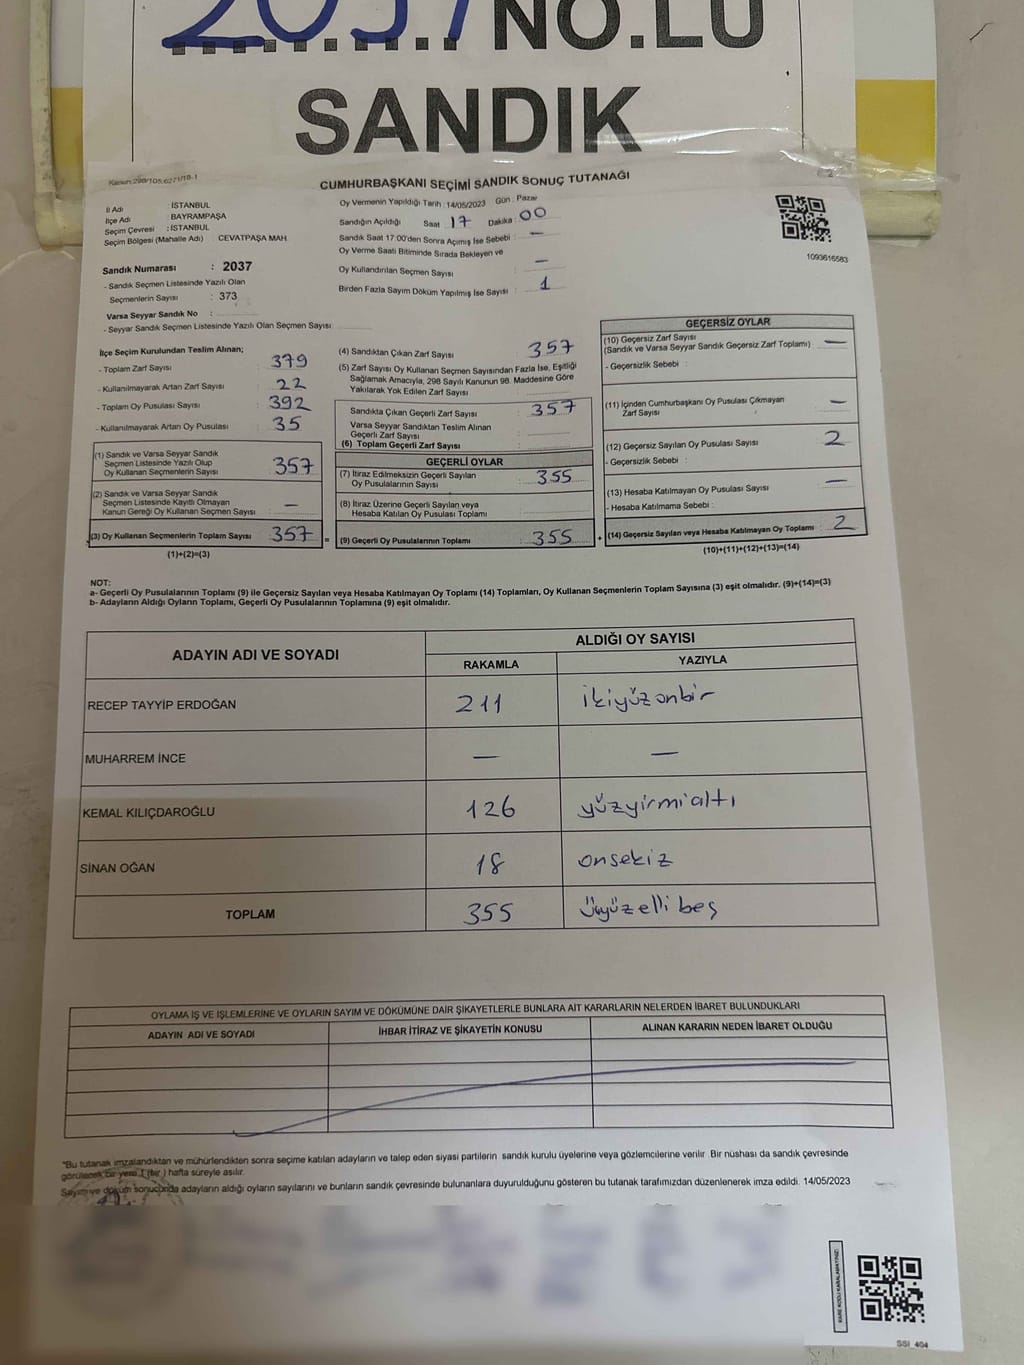 2037 NO.LU
SANDIK
Kanun:298/105,6271/18-1
CUMHURBAŞKANI SEÇİMİ SANDIK SONUÇ TUTANAĞI
İl Adı : İSTANBUL
İlçe Adı : BAYRAMPAŞA
Seçim Çevresi : İSTANBUL
Seçim Bölgesi (Mahalle Adı) CEVATPAŞA MAH.
Sandık Numarası : 2037
- Sandık Seçmen Listesinde Yazılı Olan
Seçmenlerin Sayısı : 373
Varsa Seyyar Sandık No :
- Seyyar Sandık Seçmen Listesinde Yazılı Olan Seçmen Sayısı:
Oy Vermenin Yapıldığı Tarih : 14/05/2023 Gün : Pazar
Sandığın Açıldığı Saat 17 Dakika : 00
Sandık Saat 17:00'den Sonra Açılmış İse Sebebi : —
Oy Verme Saati Bitiminde Sırada Bekleyen ve
Oy Kullandırılan Seçmen Sayısı : —
Birden Fazla Sayım Döküm Yapılmış İse Sayısı : 1
1093616583
İlçe Seçim Kurulundan Teslim Alınan;
- Toplam Zarf Sayısı : 379
- Kullanılmayarak Artan Zarf Sayısı : 22
- Toplam Oy Pusulası Sayısı : 392
- Kullanılmayarak Artan Oy Pusulası : 35
(1) Sandık ve Varsa Seyyar Sandık
Seçmen Listesinde Yazılı Olup
Oy Kullanan Seçmenlerin Sayısı : 357
(2) Sandık ve Varsa Seyyar Sandık
Seçmen Listesinde Kayıtlı Olmayan
Kanun Gereği Oy Kullanan Seçmen Sayısı : —
(3) Oy Kullanan Seçmenlerin Toplam Sayısı : 357
(1)+(2)=(3)
=
(4) Sandıktan Çıkan Zarf Sayısı : 357
(5) Zarf Sayısı Oy Kullanan Seçmen Sayısından Fazla İse, Eşitliği
Sağlamak Amacıyla, 298 Sayılı Kanunun 98. Maddesine Göre
Yakılarak Yok Edilen Zarf Sayısı :
Sandıkta Çıkan Geçerli Zarf Sayısı : 357
Varsa Seyyar Sandıktan Teslim Alınan
Geçerli Zarf Sayısı :
(6) Toplam Geçerli Zarf Sayısı :
GEÇERLİ OYLAR
(7) İtiraz Edilmeksizin Geçerli Sayılan
Oy Pusulalarının Sayısı : 355
(8) İtiraz Üzerine Geçerli Sayılan veya
Hesaba Katılan Oy Pusulası Toplamı :
(9) Geçerli Oy Pusulalarının Toplamı : 355
+
GEÇERSİZ OYLAR
(10) Geçersiz Zarf Sayısı :
(Sandık ve Varsa Seyyar Sandık Geçersiz Zarf Toplamı) —
- Geçersizlik Sebebi :
(11) İçinden Cumhurbaşkanı Oy Pusulası Çıkmayan
Zarf Sayısı : —
(12) Geçersiz Sayılan Oy Pusulası Sayısı : 2
- Geçersizlik Sebebi :
(13) Hesaba Katılmayan Oy Pusulası Sayısı : —
- Hesaba Katılmama Sebebi :
(14) Geçersiz Sayılan veya Hesaba Katılmayan Oy Toplamı : 2
(10)+(11)+(12)+(13)=(14)
NOT:
a- Geçerli Oy Pusulalarının Toplamı (9) ile Geçersiz Sayılan veya Hesaba Katılmayan Oy Toplamı (14) Toplamları, Oy Kullanan Seçmenlerin Toplam Sayısına (3) eşit olmalıdır. (9)+(14)=(3)
b- Adayların Aldığı Oyların Toplamı, Geçerli Oy Pusulalarının Toplamına (9) eşit olmalıdır.
ADAYIN ADI VE SOYADI
ALDIĞI OY SAYISI
RAKAMLA YAZIYLA
RECEP TAYYİP ERDOĞAN 211 ikiyüzonbir
MUHARREM İNCE — —
KEMAL KILIÇDAROĞLU 126 yüzyirmialtı
SİNAN OĞAN 18 onsekiz
TOPLAM 355 üçyüzelli beş
OYLAMA İŞ VE İŞLEMLERİNE VE OYLARIN SAYIM VE DÖKÜMÜNE DAİR ŞİKAYETLERLE BUNLARA AİT KARARLARIN NELERDEN İBARET BULUNDUKLARI
ADAYIN ADI VE SOYADI İHBAR İTİRAZ VE ŞİKAYETİN KONUSU ALINAN KARARIN NEDEN İBARET OLDUĞU
*Bu tutanak imzalandıktan ve mühürlendikten sonra seçime katılan adayların ve talep eden siyasi partilerin sandık kurulu üyelerine veya gözlemcilerine verilir .Bir nüshası da sandık çevresinde
görülecek bir yere 1 (bir ) hafta süreyle asılır.
Sayım ve döküm sonucunda adayların aldığı oyların sayılarını ve bunların sandık çevresinde bulunanlara duyurulduğunu gösteren bu tutanak tarafımızdan düzenlenerek imza edildi. 14/05/2023
KARE KODU KARALAMAYINIZ!
SSİ_404